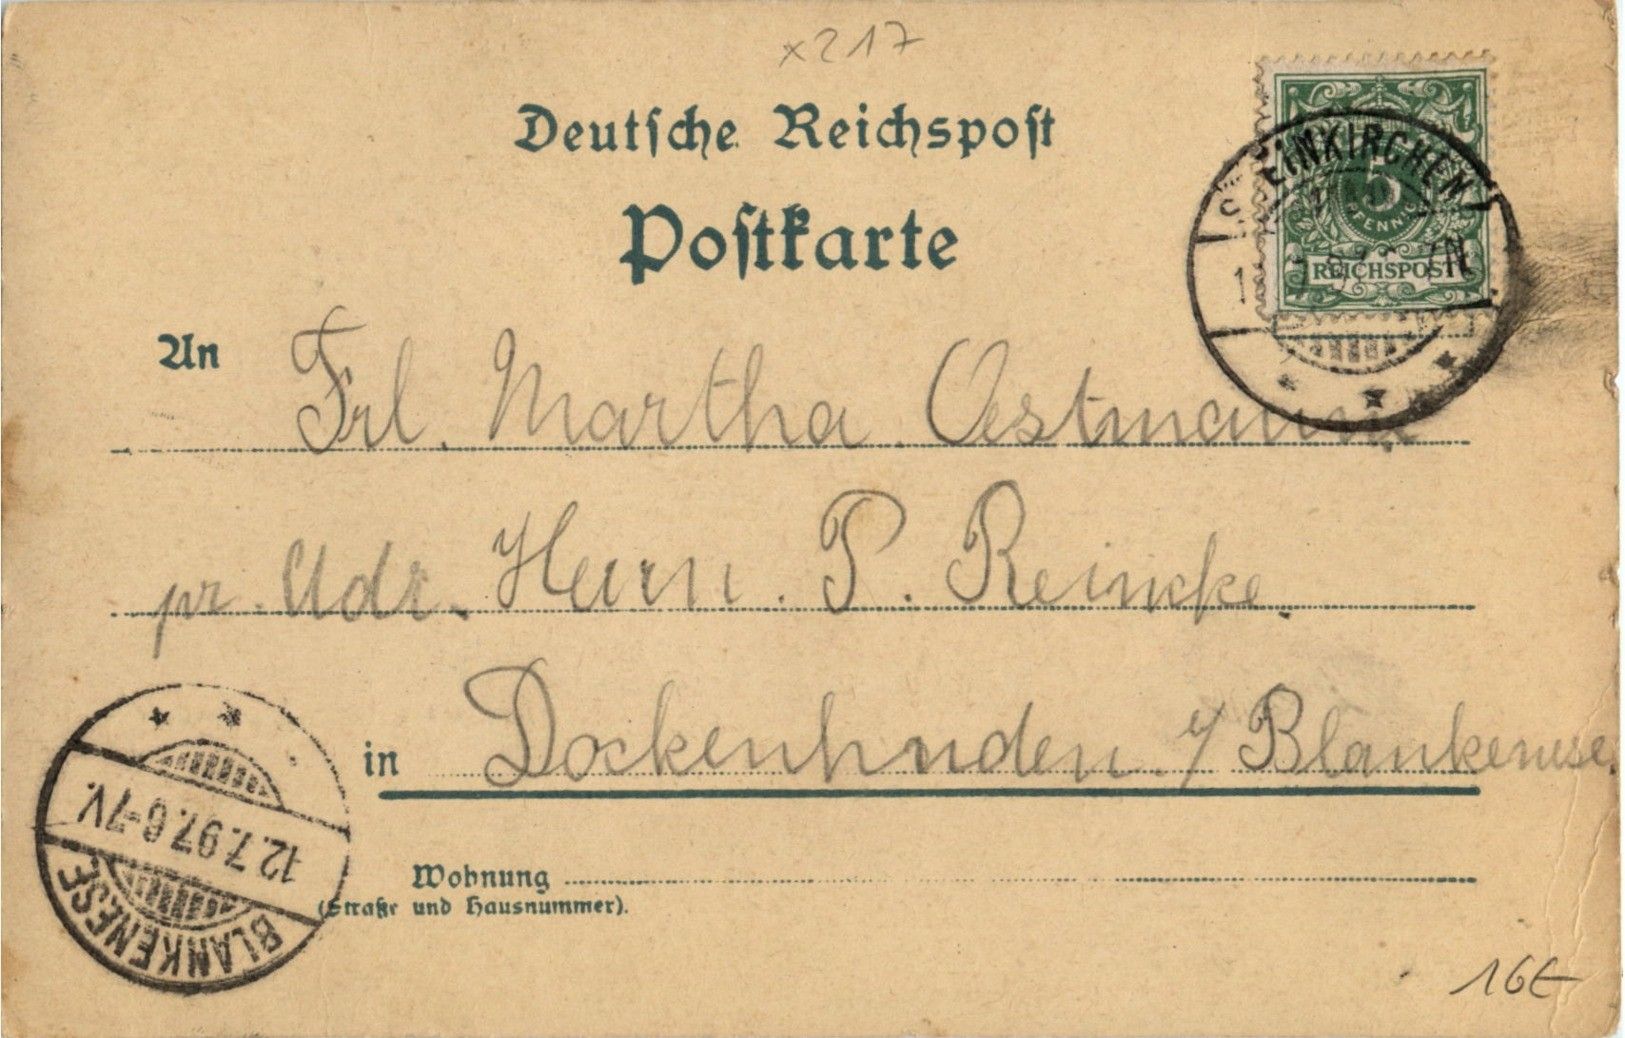 x217
Deutsche Reichspost
Postkarte
5
PFENNIG
REICHSPOST
STEINKIRCHEN
7N
An Frl. Martha Oestmann
pr. Adr. Herrn. P. Reincke.
in Dockenhuden. b/ Blankenese.
12.7.97.6-7V.
BLANKENESE
Wohnung
(Straße und Hausnummer).
16€